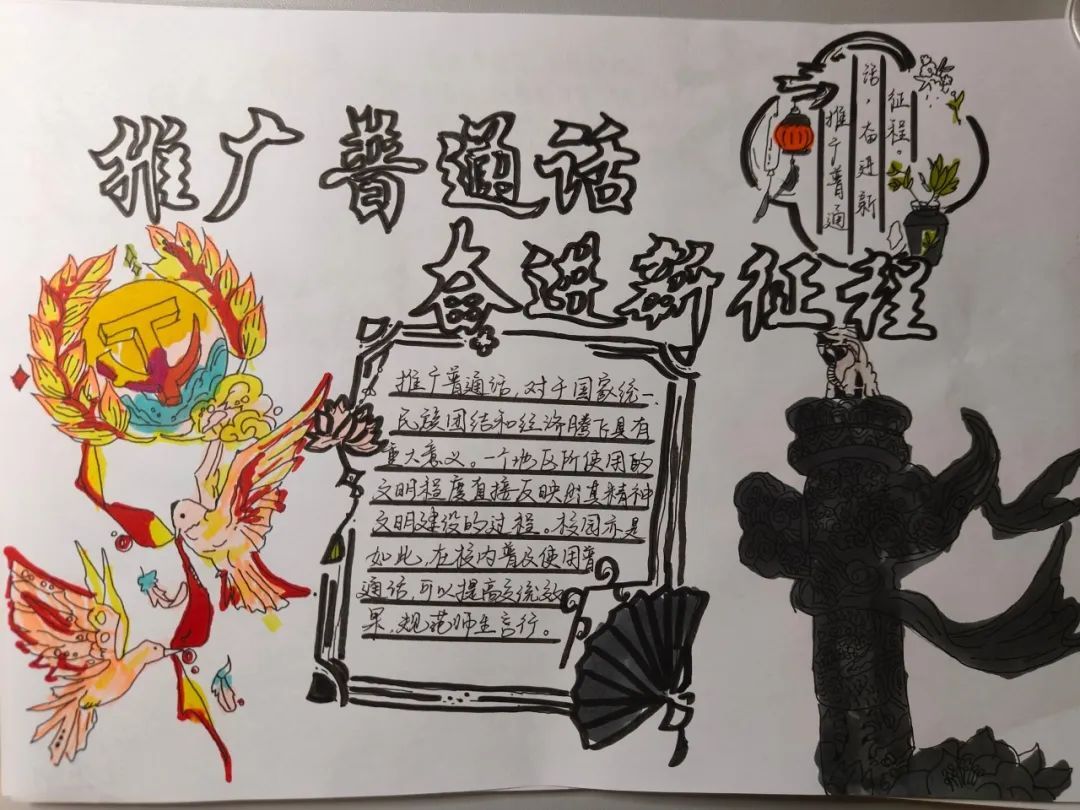 推广普通话
奋进新征程
推广普通
话，奋进新
征程。
推广普通话，对于国家统一、
民族团结和经济腾飞具有
重大意义。一个地区所使用的
文明程度直接反映出其精神
文明建设的过程。校园亦是
如此，在校内普及使用普
通话，可以提高交流效
果，规范师生言行。